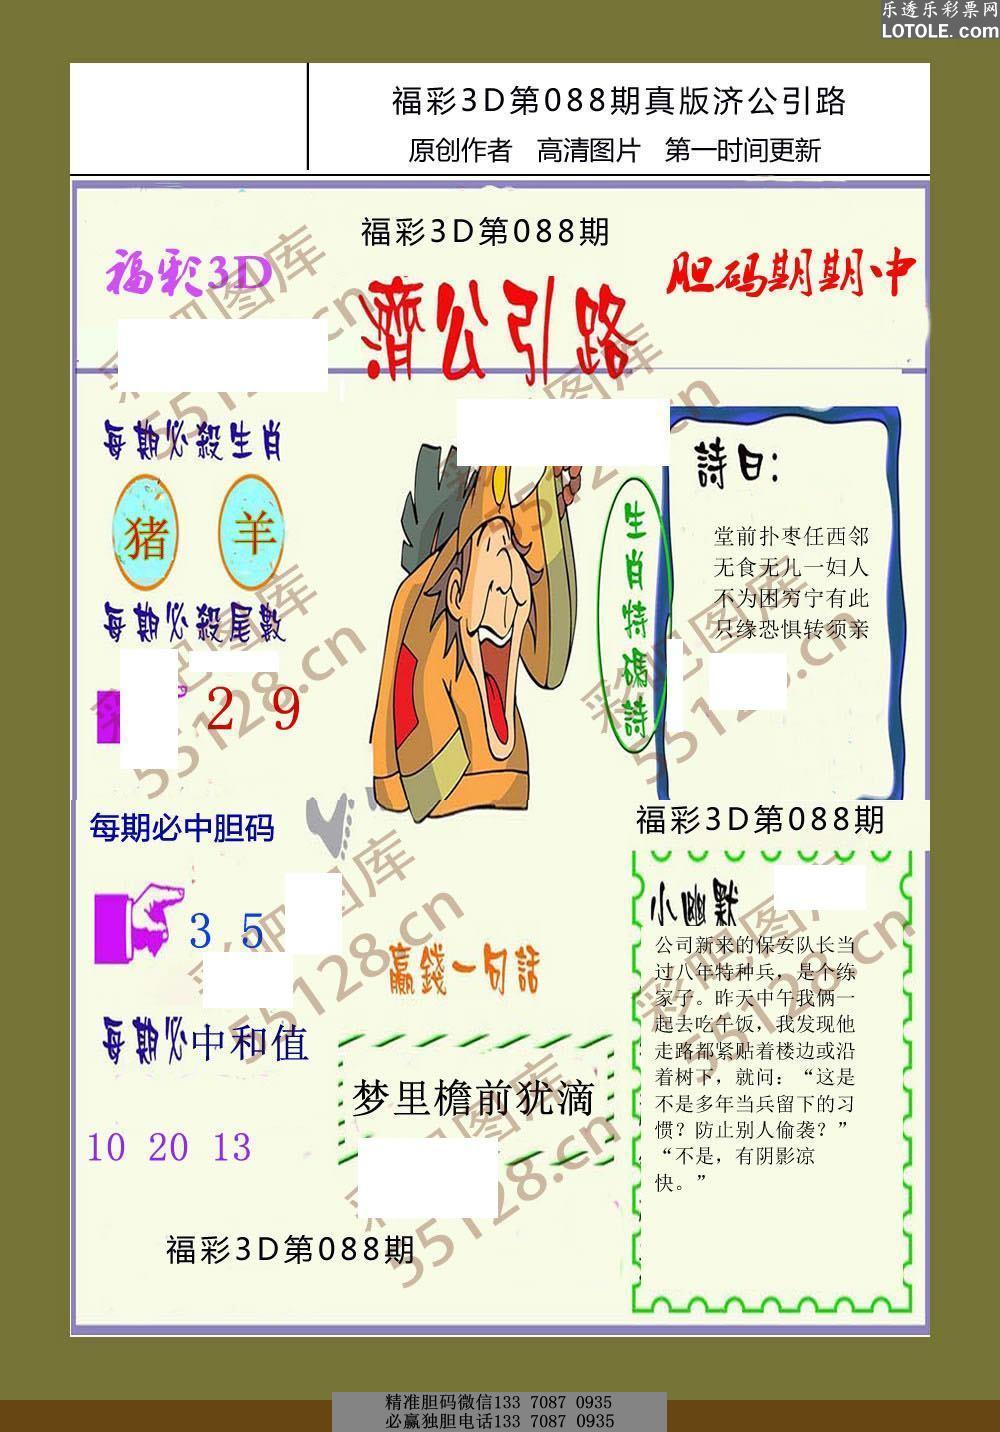 乐透乐彩票网
LOTOLE.com
福彩3D第088期真版济公引路
原创作者 高清图片 第一时间更新
福彩3D第088期
福彩3D
胆码期期中
濟公引路
每期必殺生肖
猪 羊
每期必殺尾數
2 9
生肖特碼詩
詩曰：
堂前扑枣任西邻
无食无儿一妇人
不为困穷宁有此
只缘恐惧转须亲
每期必中胆码
3 5
每期必中和值
10 20 13
赢錢一句話
梦里檐前犹滴
福彩3D第088期
福彩3D第088期
小幽默
公司新来的保安队长当
过八年特种兵，是个练
家子。昨天中午我俩一
起去吃午饭，我发现他
走路都紧贴着楼边或沿
着树下，就问：“这是
不是多年当兵留下的习
惯？防止别人偷袭？”
“不是，有阴影凉
快。”
彩吧图库
55128.cn
彩吧图库
55128.cn
彩吧图库
55128.cn
彩吧图库
55128.cn
彩吧图库
55128.cn
精准胆码微信133 7087 0935
必赢独胆电话133 7087 0935